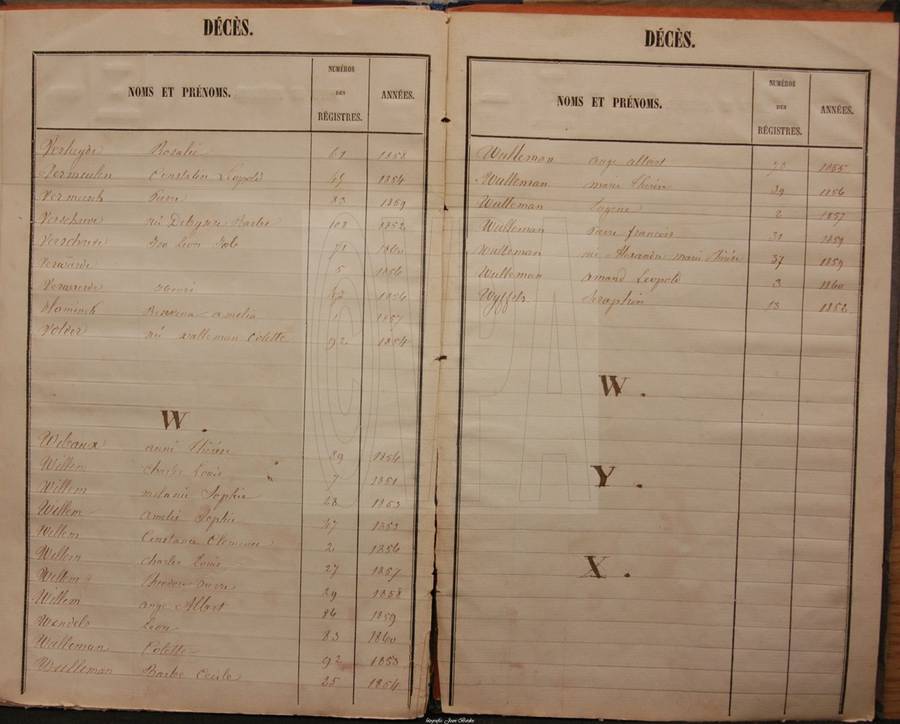 DÉCÈS.
NOMS ET PRÉNOMS. NUMÉROS DES RÉGISTRES. ANNÉES.
Rosalie 61 1858
Vermeulen Constatin Léopold 45 1854
Verminck Pierre 83 1859
Verschuere née Barbe 108 1852
Verschuere Léon 72 1860
5 1856
Henri 42 1856
Vlaminck Amelia 1 1857
Volder née Walleman Colette 92 1854
W.
anne Thérèse 39 1856
Willem Charles Louis 7 1851
Willem mélanie Sophie 48 1853
Willem Amelie Sophie 47 1853
Willem Constance Clemence 2 1856
Willem charles Louis 27 1857
Willem Pierre 39 1858
Willem ange Albert 84 1859
Wendels Léon 83 1860
Walleman Colette 92 1853
Wulleman Barbe Cécile 25 1854
DÉCÈS.
NOMS ET PRÉNOMS. NUMÉROS DES RÉGISTRES. ANNÉES.
Wulleman ange albert 78 1855
Wulleman marie Thérèse 39 1856
Wulleman Eugène 2 1857
Wulleman Pierre francois 31 1859
Wulleman née Alexander marie Thérèse 37 1859
Wulleman amand Léopold 3 1860
Wyffels Seraphin 13 1852
W.
Y.
X.
CAPA